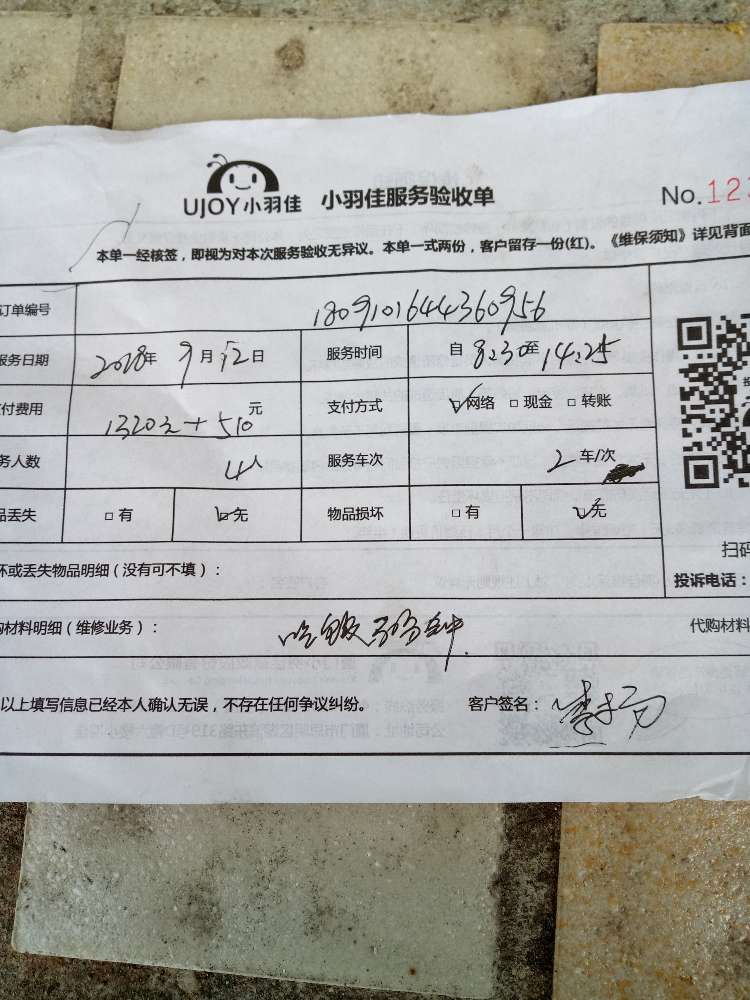 UJOY小羽佳 小羽佳服务验收单
No.12
本单一经核签，即视为对本次服务验收无异议。本单一式两份，客户留存一份(红)。《维保须知》详见背面
订单编号 1809101644360956
服务日期 2018年 9月12日 服务时间 自 8:30至 14:25
付费用 1320元+510元 支付方式 ☑网络 □现金 □转账
务人数 4人 服务车次 2车/次
品丢失 □有 ☑无 物品损坏 □有 ☑无
坏或丢失物品明细（没有可不填）：
扫码
投诉电话：
购材料明细（维修业务）：
代购材料
以上填写信息已经本人确认无误，不存在任何争议纠纷。 客户签名：